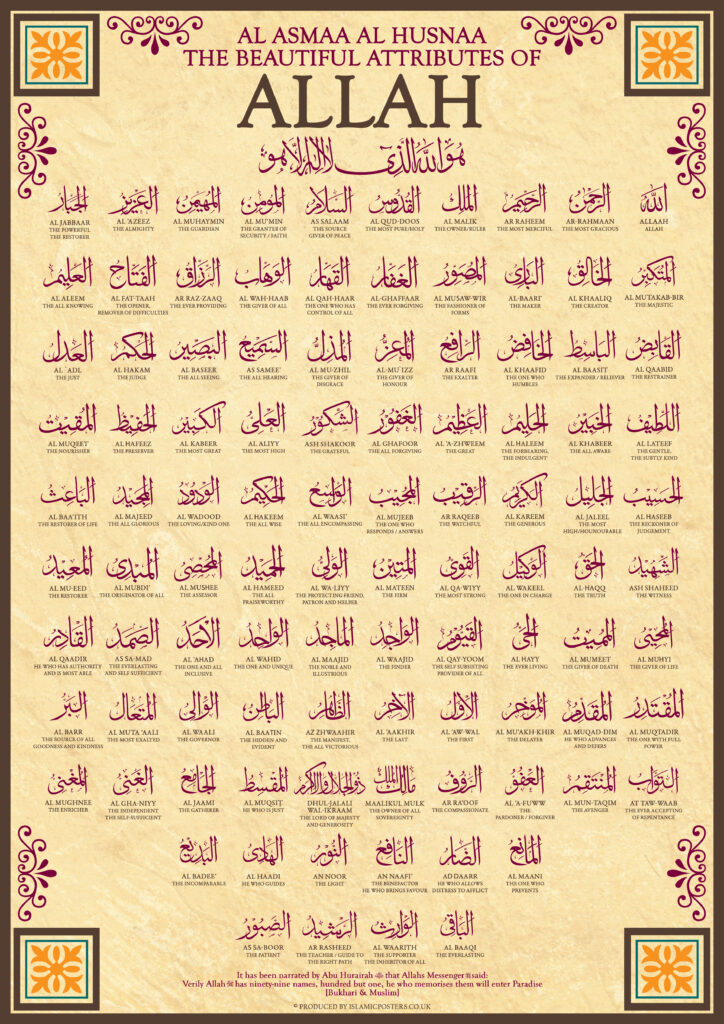 AL ASMAA AL HUSNAA
THE BEAUTIFUL ATTRIBUTES OF
ALLAH
هُوَ اللهُ الَّذِي لَا إِلٰهَ إِلَّا هُوَ
الله
ALLAAH
ALLAH
الرحمن
AR-RAHMAAN
THE MOST GRACIOUS
الرحيم
AR RAHEEM
THE MOST MERCIFUL
الملك
AL MALIK
THE OWNER/RULER
القدوس
AL QUD-DOOS
THE MOST PURE/HOLY
السلام
AS SALAAM
THE SOURCE
GIVER OF PEACE
المؤمن
AL MU'MIN
THE GRANTER OF
SECURITY / FAITH
المهيمن
AL MUHAYMIN
THE GUARDIAN
العزيز
AL 'AZEEZ
THE ALMIGHTY
الجبار
AL JABBAAR
THE POWERFUL
THE RESTORER
المتكبر
AL MUTAKAB-BIR
THE MAJESTIC
الخالق
AL KHAALIQ
THE CREATOR
الباري
AL-BAARI'
THE MAKER
المصور
AL MUSAW-WIR
THE FASHIONER OF
FORMS
الغفار
AL-GHAFFAAR
THE EVER FORGIVING
القهار
AL QAH-HAAR
THE ONE WHO HAS
CONTROL OF ALL
الوهاب
AL WAH-HAAB
THE GIVER OF ALL
الرزاق
AR RAZ-ZAAQ
THE EVER PROVIDING
الفتاح
AL FAT-TAAH
THE OPENER,
REMOVER OF DIFFICULTIES
العليم
AL ALEEM
THE ALL KNOWING
القابض
AL QAABID
THE RESTRAINER
الباسط
AL BAASIT
THE EXPANDER / RELIEVER
الخافض
AL KHAAFID
THE ONE WHO
HUMBLES
الرافع
AR RAAFI
THE EXALTER
المعز
AL-MU`IZZ
THE GIVER OF
HONOUR
المذل
AL MU-ZHIL
THE GIVER OF
DISGRACE
السميع
AS SAMEE'
THE ALL HEARING
البصير
AL BASEER
THE ALL SEEING
الحكم
AL HAKAM
THE JUDGE
العدل
AL `ADL
THE JUST
اللطيف
AL LATEEF
THE GENTLE,
THE SUBTLY KIND
الخبير
AL KHABEER
THE ALL AWARE
الحليم
AL HALEEM
THE FORBEARING,
THE INDULGENT
العظيم
AL 'A-ZHWEEM
THE GREAT
الغفور
AL GHAFOOR
THE ALL FORGIVING
الشكور
ASH SHAKOOR
THE GRATEFUL
العلي
AL ALIYY
THE MOST HIGH
الكبير
AL KABEER
THE MOST GREAT
الحفيظ
AL HAFEEZ
THE PRESERVER
المقيت
AL MUQEET
THE NOURISHER
الحسيب
AL HASEEB
THE RECKONER OF
JUDGEMENT.
الجليل
AL JALEEL
THE MOST
HIGH/HOUNOURABLE
الكريم
AL KAREEM
THE GENEROUS
الرقيب
AR RAQEEB
THE WATCHFUL
المجيب
AL MUJEEB
THE ONE WHO
RESPONDS / ANSWERS
الواسع
AL WAASI'
THE ALL ENCOMPASSING
الحكيم
AL HAKEEM
THE ALL WISE
الودود
AL WADOOD
THE LOVING/KIND ONE
المجيد
AL MAJEED
THE ALL GLORIOUS
الباعث
AL BAA'ITH
THE RESTORER OF LIFE
الشهيد
ASH SHAHEED
THE WITNESS
الحق
AL-HAQQ
THE TRUTH
الوكيل
AL WAKEEL
THE ONE IN CHARGE
القوي
AL QA-WIYY
THE MOST STRONG
المتين
AL MATEEN
THE FIRM
الولي
AL WA-LIYY
THE PROTECTING FRIEND,
PATRON AND HELPER
الحميد
AL HAMEED
THE ALL
PRAISEWORTHY
المحصي
AL MUSHEE
THE ASSESSOR
المبدي
AL MUBDI'
THE ORIGINATOR OF ALL
المعيد
AL MU-EED
THE RESTORER
المحيي
AL MUHYI
THE GIVER OF LIFE
المميت
AL MUMEET
THE GIVER OF DEATH
الحي
AL HAYY
THE EVER LIVING
القيوم
AL QAY-YOOM
THE SELF SUBSISTING
PROVIDER OF ALL
الواجد
AL WAAJID
THE FINDER
الماجد
AL MAAJID
THE NOBLE AND
ILLUSTRIOUS
الواحد
AL WAHID
THE ONE AND UNIQUE
الأحد
AL 'AHAD
THE ONE AND ALL
INCLUSIVE
الصمد
AS SA-MAD
THE EVERLASTING
AND SELF SUFFICIENT
القادر
AL QAADIR
HE WHO HAS AUTHORITY
AND IS MOST ABLE
المقتدر
AL MUQTADIR
THE ONE WITH FULL
POWER
المقدم
AL MUQAD-DIM
HE WHO ADVANCES
AND DEFERS
المؤخر
AL MU'AKH-KHIR
THE DELAYER
الأول
AL 'AW-WAL
THE FIRST
الآخر
AL 'AAKHIR
THE LAST
الظاهر
AZ ZHWAAHIR
THE MANIFEST,
THE ALL VICTORIOUS
الباطن
AL BAATIN
THE HIDDEN AND
EVIDENT
الوالي
AL WAALI
THE GOVERNOR
المتعال
AL MUTA 'AALI
THE MOST EXALTED
البر
AL BARR
THE SOURCE OF ALL
GOODNESS AND KINDNESS
التواب
AT TAW-WAAB
THE EVER ACCEPTING
OF REPENTANCE
المنتقم
AL MUN-TAQIM
THE AVENGER
العفو
AL 'A-FUWW
THE
PARDONER / FORGIVER
الرؤوف
AR RA'OOF
THE COMPASSIONATE
مالك الملك
MAALIKUL MULK
THE OWNER OF ALL
SOVEREIGNTY
ذو الجلال والإكرام
DHUL-JALALI
WAL-IKRAAM
THE LORD OF MAJESTY
AND GENEROSITY
المقسط
AL MUQSIT
HE WHO IS JUST
الجامع
AL JAAMI
THE GATHERER
الغني
AL GHA-NIYY
THE INDEPENDENT
THE SELF-SUFFICIENT
المغني
AL MUGHNEE
THE ENRICHER
المانع
AL MAANI
THE ONE WHO
PREVENTS
الضار
AD DAARR
HE WHO ALLOWS
DISTRESS TO AFFLICT
النافع
AN NAAFI'
THE BENEFACTOR
HE WHO BRINGS FAVOUR
النور
AN NOOR
THE LIGHT
الهادي
AL HAADI
HE WHO GUIDES
البديع
AL BADEE'
THE INCOMPARABLE
الباقي
AL BAAQI
THE EVERLASTING
الوارث
AL WAARITH
THE SUPPORTER
THE INHERITOR OF ALL
الرشيد
AR RASHEED
THE TEACHER / GUIDE TO
THE RIGHT PATH
الصبور
AS SA-BOOR
THE PATIENT
It has been narrated by Abu Hurairah that Allahs Messenger ﷺ said:
Verily Allah has ninety-nine names, hundred but one, he who memorises them will enter Paradise
[Bukhari & Muslim]
© PRODUCED BY ISLAMICPOSTERS.CO.UK